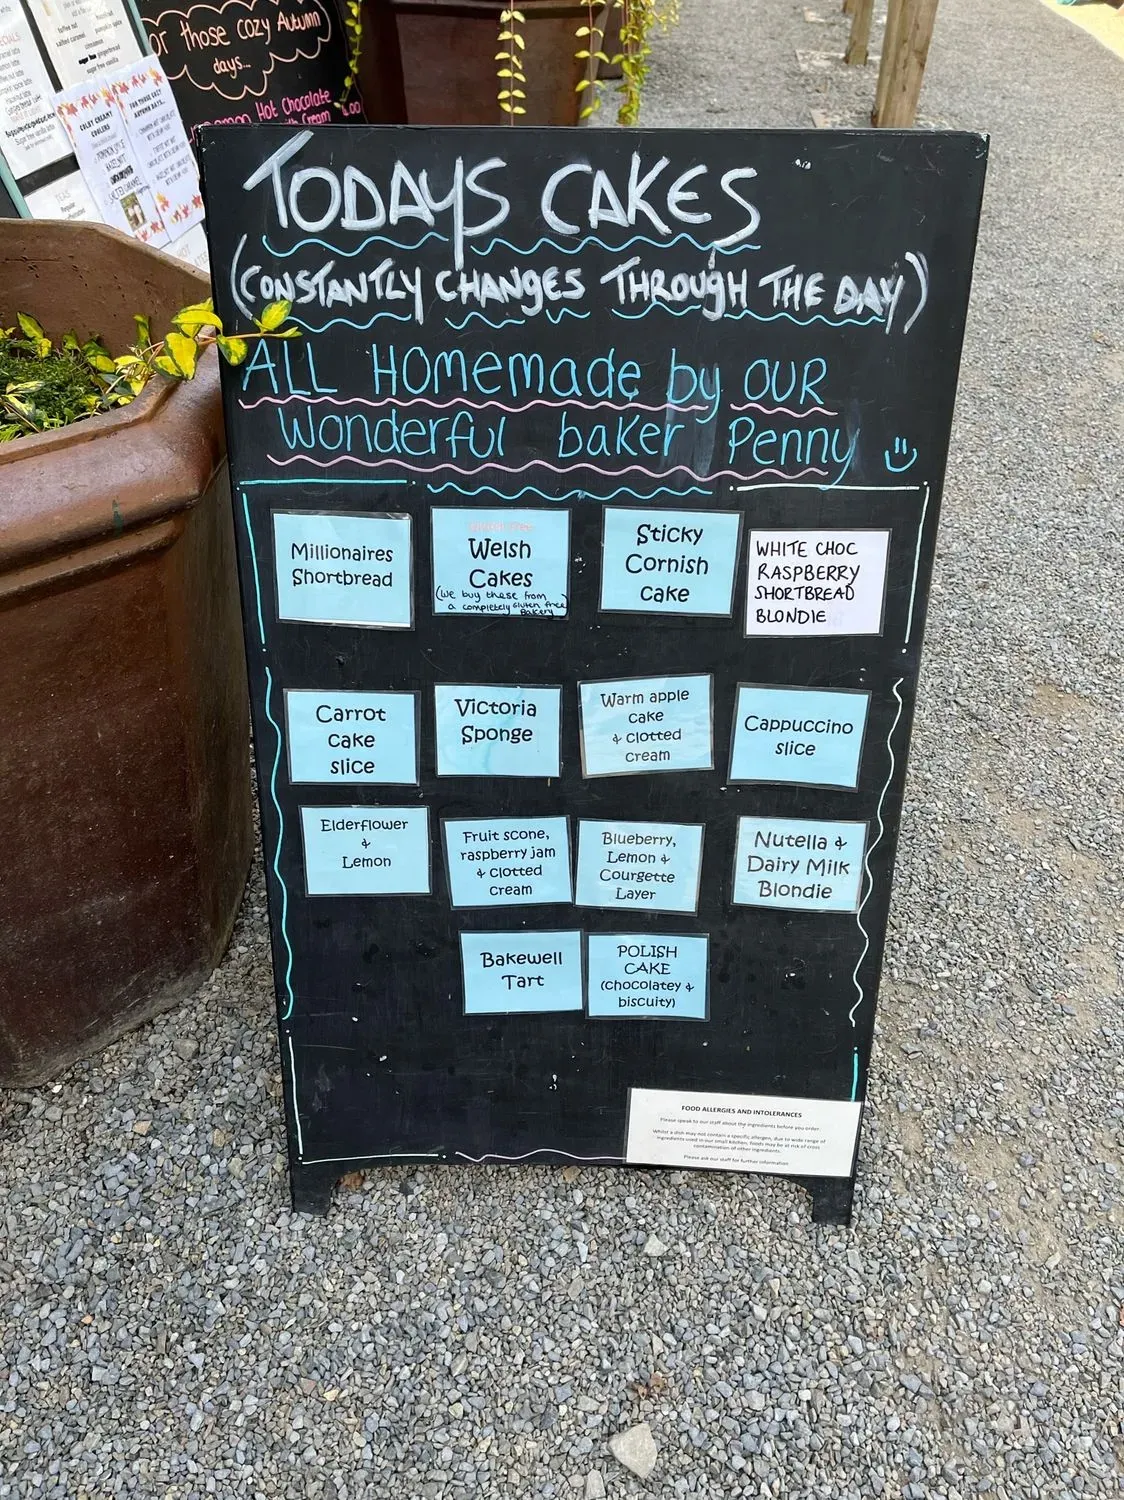 or those cozy Autumn
days...
Hot Chocolate
Cream
TODAYS CAKES
(CONSTANTLY CHANGES THROUGH THE DAY)
ALL HOMEMADE by OUR
Wonderful baker Penny
Millionaires
Shortbread
Gluten free
Welsh
Cakes
(we buy these from
a completely Gluten free
Bakery)
Sticky
Cornish
cake
WHITE CHOC
RASPBERRY
SHORTBREAD
BLONDIE
Carrot
cake
slice
Victoria
Sponge
Warm apple
cake
& clotted
cream
Cappuccino
slice
Elderflower
&
Lemon
Fruit scone,
raspberry jam
& clotted
cream
Blueberry,
Lemon &
Courgette
Layer
Nutella &
Dairy Milk
Blondie
Bakewell
Tart
POLISH
CAKE
(chocolatey &
biscuity)
FOOD ALLERGIES AND INTOLERANCES
Please speak to our staff about the ingredients before you order.
Whilst a dish may not contain a specific allergen, due to wide range of
ingredients used in our small kitchen, foods may be at risk of cross
contamination of other ingredients.
Please ask our staff for further information